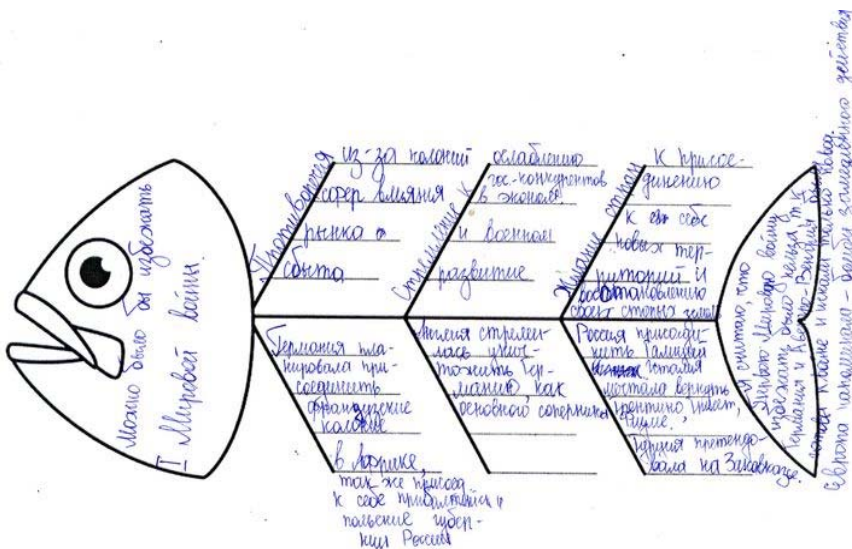 Можно было бы избежать
I Мировой войны.
Противоречия
из-за колоний
сфер влияния
рынка
сбыта
Стремление к
ослаблению
гос-конкурентов
в эконом.
и военном
развитие
Желание стран
к присое-
динению
к себе
новых тер-
риторий и
восстановлению
своих старых земель
Германия пла-
нировала при-
соединить
французские
колонии
в Африке,
так же присоед.
к себе прибалтийск. и
польские губер-
нии России
Англия стреми-
лась унич-
тожить Гер-
манию, как
основного соперника
Россия присоеди-
нить Галицию
Италия
мечтала вернуть
Трентино Триест,
Фиуме.
Турция претендо-
вала на Закавказье.
Я считаю, что
Первую Мировую войну
избежать было нельзя т.к
Германия и Австро-Венгрия были
готовы к войне и искали только повод.
Европа напоминала - бомбу замедленного действия